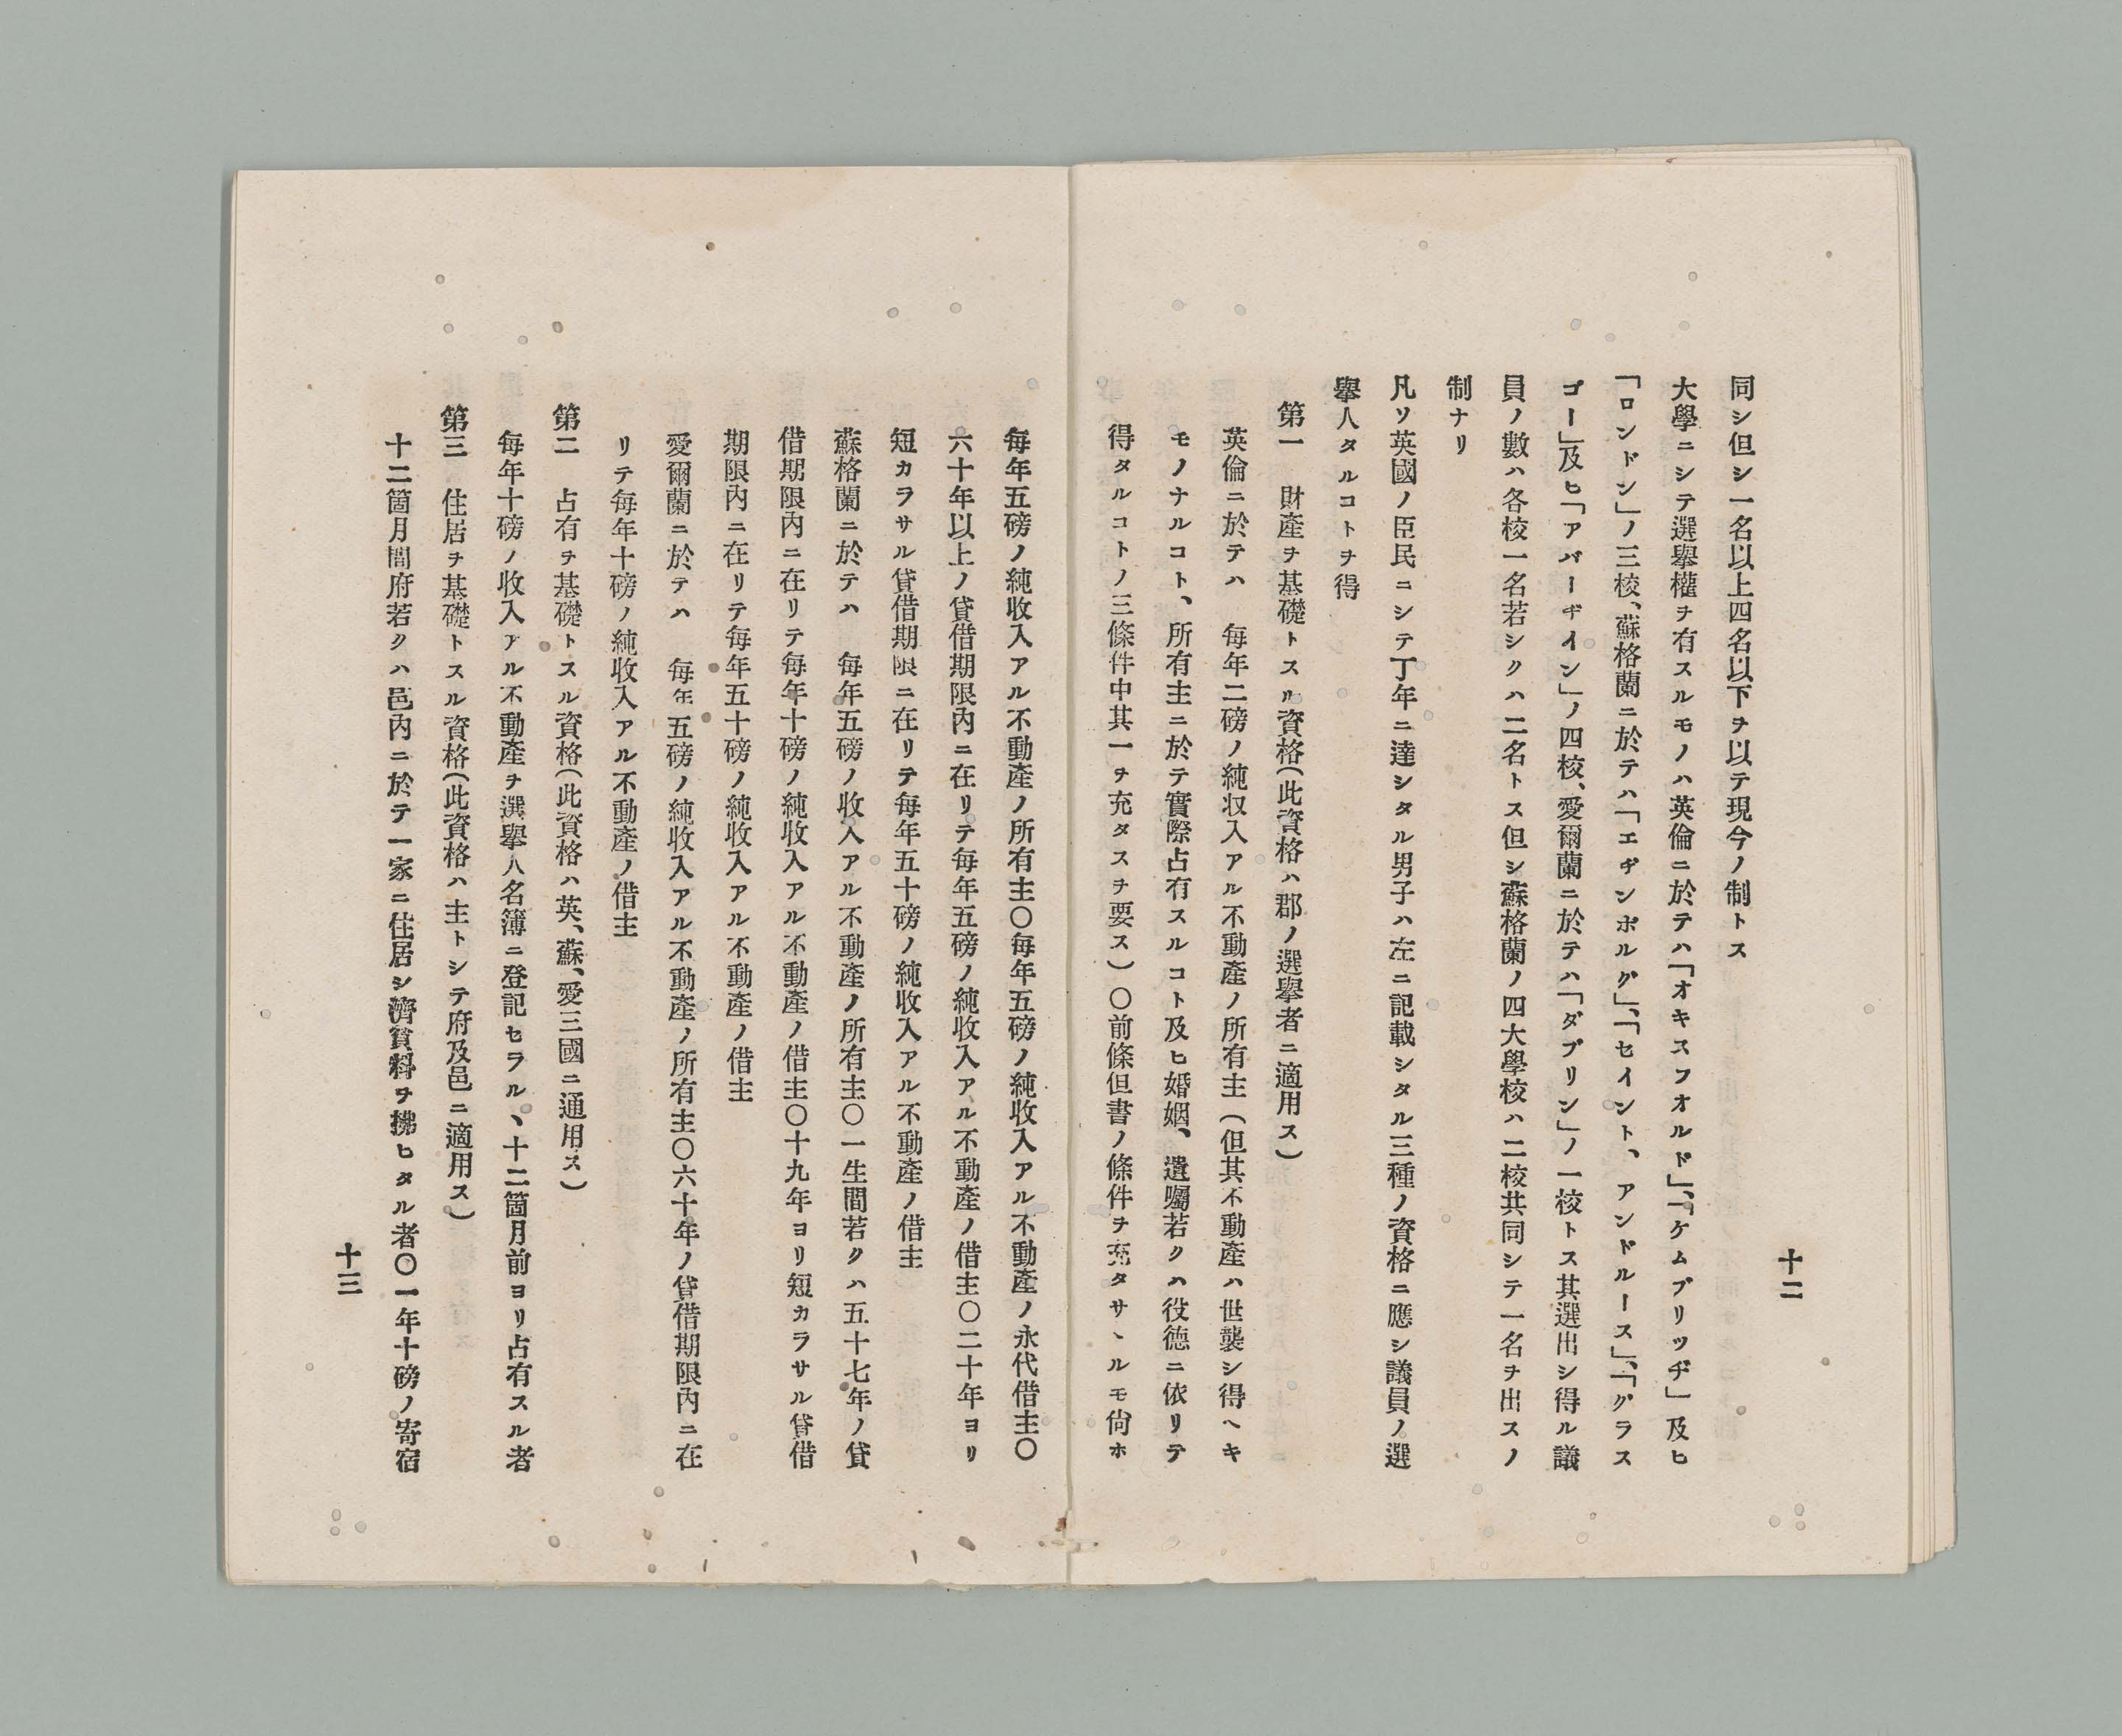 十二
同シ但シ一名以上四名以下ヲ以テ現今ノ制トス
大學ニシテ選擧權ヲ有スルモノハ英倫ニ於テハ「オキスフオルド」、「ケムブリツヂ」及ヒ
「ロンドン」ノ三校、蘇格蘭ニ於テハ「エヂンボルグ」、「セイント、アンドルース」、「グラス
ゴー」及ヒ「アバーヂイン」ノ四校、愛爾蘭ニ於テハ「ダブリン」ノ一校トス其選出シ得ル議
員ノ數ハ各校一名若シクハ二名トス但シ蘇格蘭ノ四大學校ハ二校共同シテ一名ヲ出スノ
制ナリ
凡ソ英國ノ臣民ニシテ丁年ニ達シタル男子ハ左ニ記載シタル三種ノ資格ニ應シ議員ノ選
擧人タルコトヲ得
第一　財產ヲ基礎トスル資格(此資格ハ郡ノ選擧者ニ適用ス)
英倫ニ於テハ　每年二磅ノ純収入アル不動產ノ所有主(但其不動產ハ世襲シ得ヘキ
モノナルコト、所有主ニ於テ實際占有スルコト及ヒ婚姻、遺囑若クハ役德ニ依リテ
得タルコトノ三條件中其一ヲ充タスヲ要ス)〇前條但書ノ條件ヲ充タサヽルモ尙ホ
每年五磅ノ純收入アル不動產ノ所有主〇每年五磅ノ純收入アル不動產ノ永代借主〇
六十年以上ノ貸借期限內ニ在リテ每年五磅ノ純收入アル不動產ノ借主〇二十年ヨリ
短カラサル貸借期限ニ在リテ每年五十磅ノ純收入アル不動產ノ借主
蘇格蘭ニ於テハ　每年五磅ノ收入アル不動產ノ所有主〇一生間若クハ五十七年ノ貸
借期限內ニ在リテ每年十磅ノ純收入アル不動產ノ借主〇十九年ヨリ短カラサル貸借
期限內ニ在リテ每年五十磅ノ純收入アル不動產ノ借主
愛爾蘭ニ於テハ　每年五磅ノ純收入アル不動產ノ所有主〇六十年ノ貸借期限內ニ在
リテ每年十磅ノ純收入アル不動產ノ借主
第二　占有ヲ基礎トスル資格(此資格ハ英、蘇、愛三國ニ通用ス)
每年十磅ノ收入アル不動產ヲ選擧人名簿ニ登記セラルヽ十二箇月前ヨリ占有スル者
第三　住居ヲ基礎トスル資格(此資格ハ主トシテ府及邑ニ適用ス)
十二箇月間府若クハ邑內ニ於テ一家ニ住居シ濟貧料ヲ拂ヒタル者〇一年十磅ノ寄宿
十三